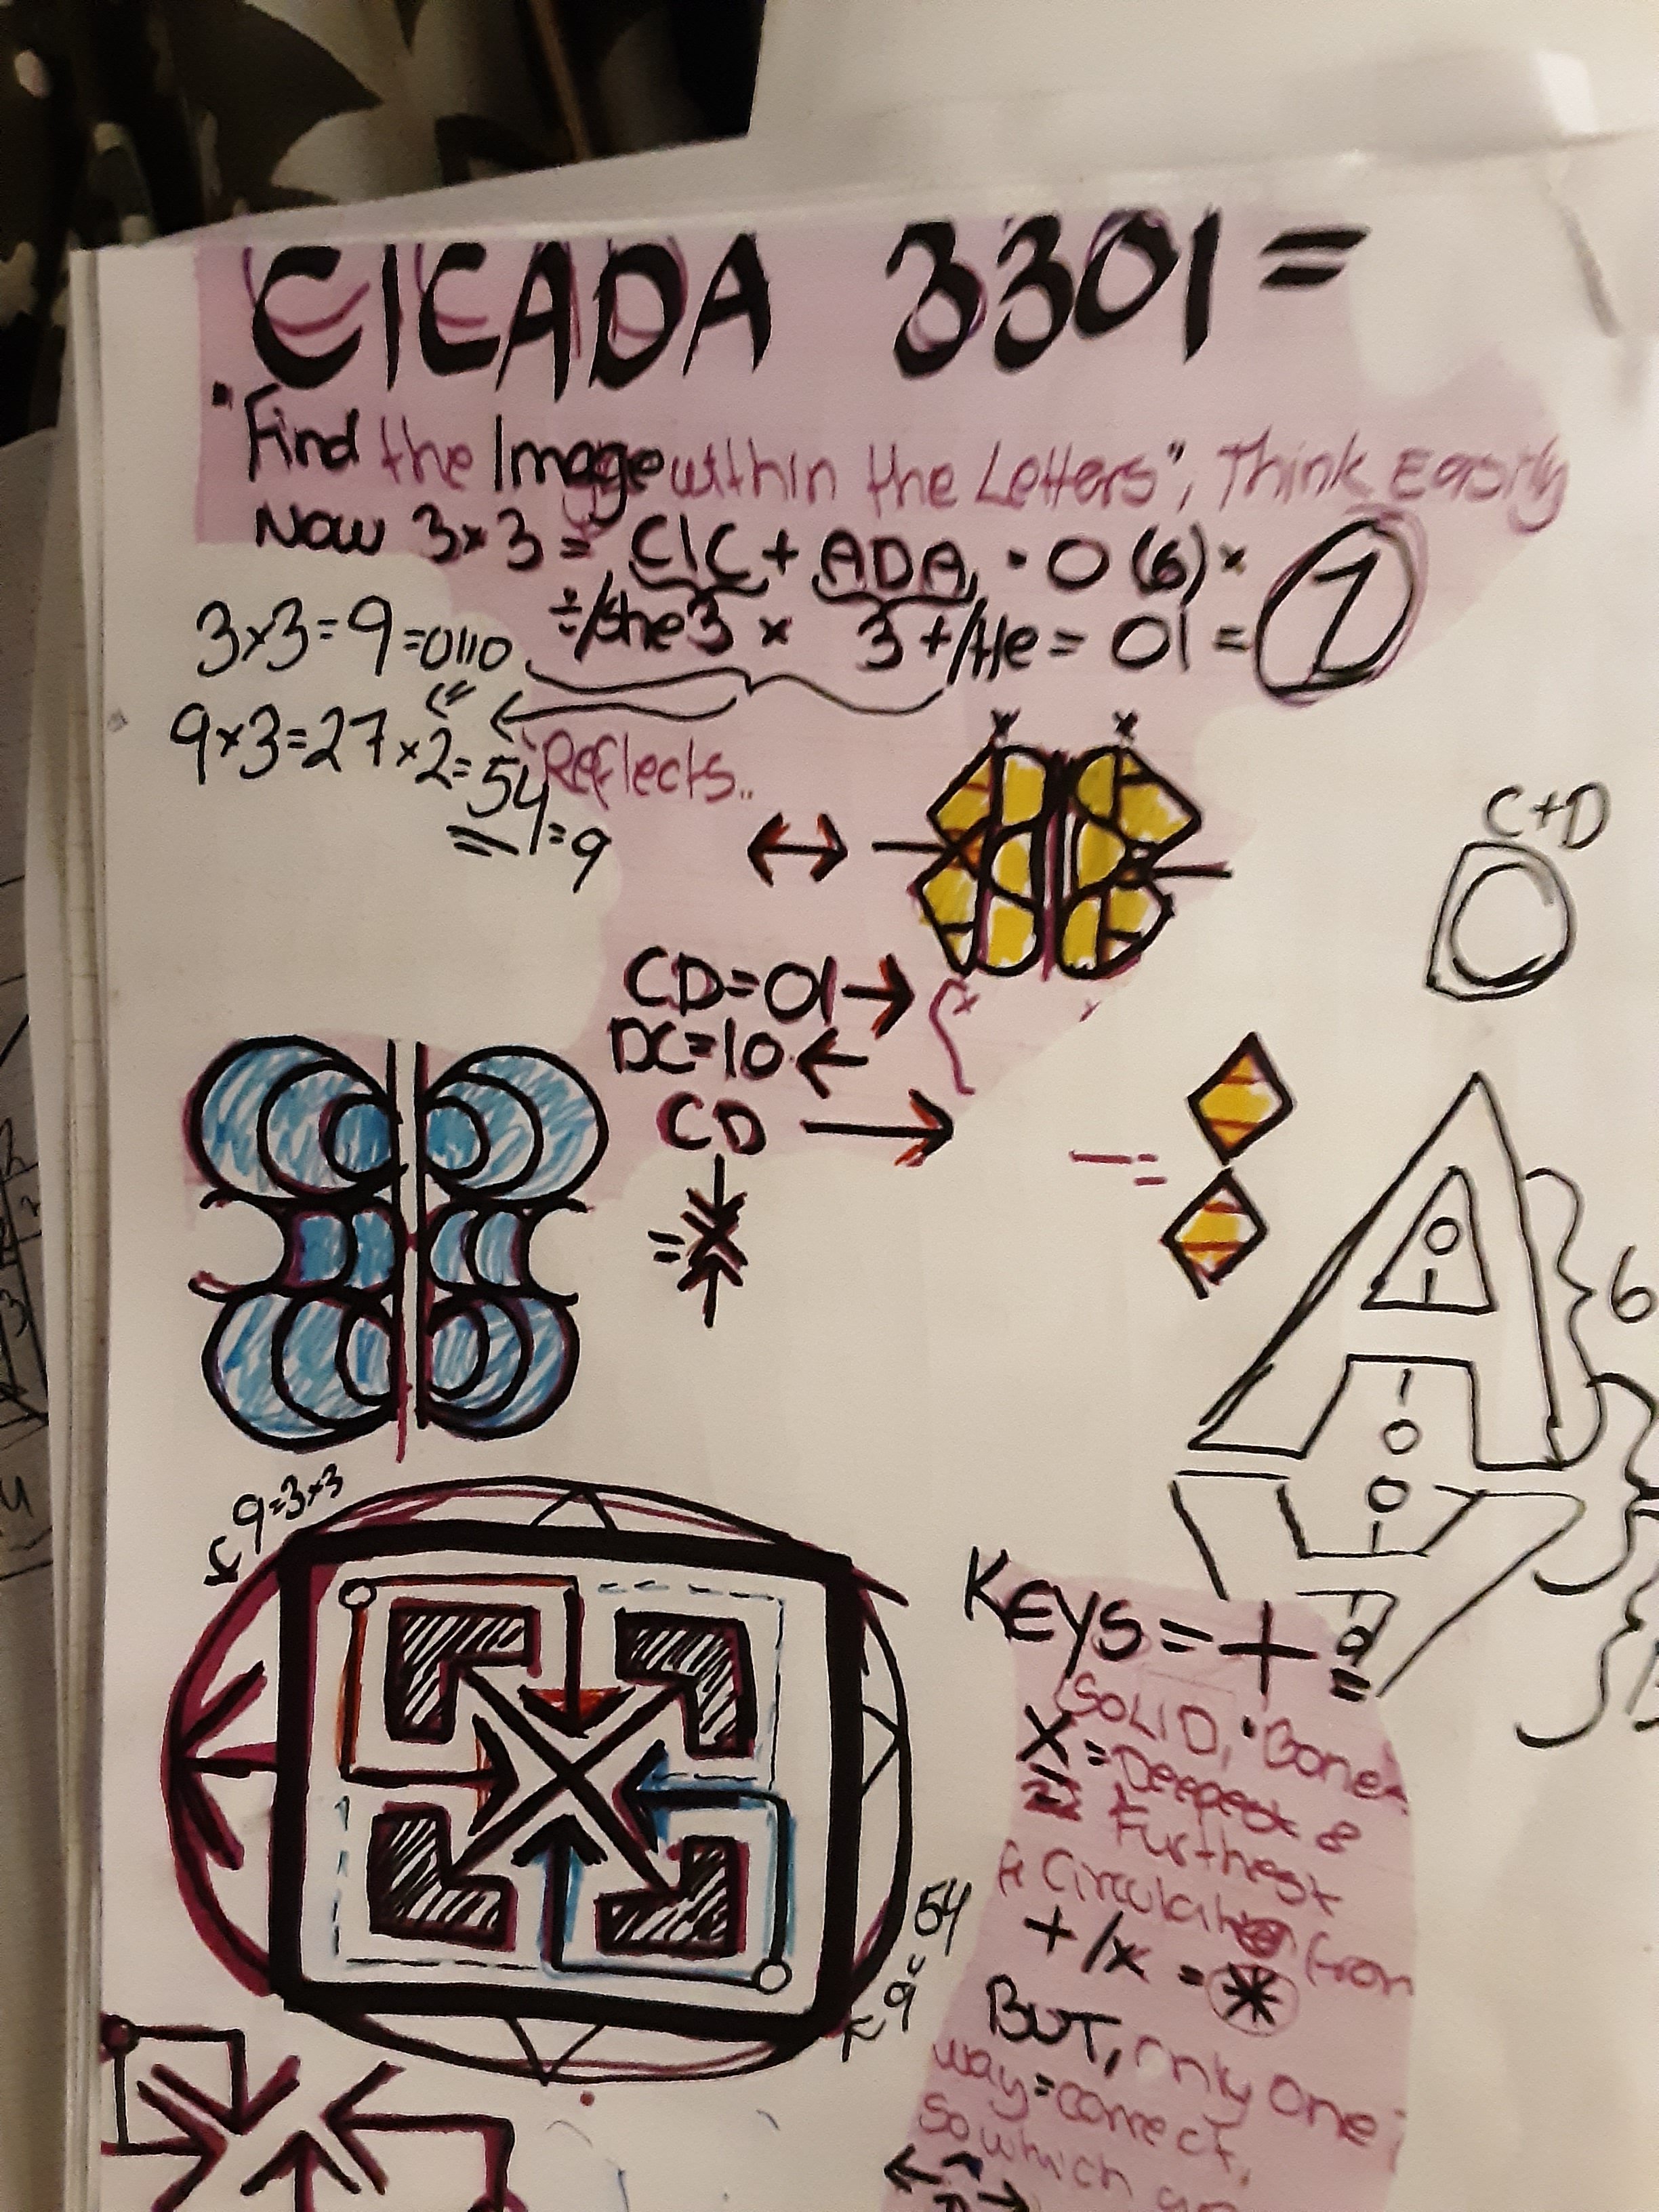 CICADA 3301 =
"Find the Image within the Letters", Think Easily
Now 3x3 = CIC + ADA · O (6) x
÷/she 3 x 3 +/He = 01 = 1
3x3=9=0110
9x3=27x2=54
Reflects..
=9
x x
C+D
CD=01→
DC=10←
CD →
=
=
6
9=3x3
KEYS = +
SOLID, "Bone"
X = Deepest &
Furthest
Circulation from
+/x = *
54
9
BUT, only one
way=correct,
so which